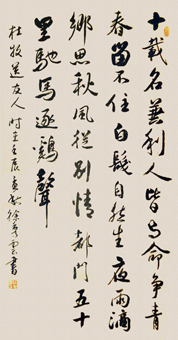 十載名兼利人皆与命争青
春留不住白髮自然生夜雨滴
鄉思秋風從別情都門五十
里馳馬逐鷄聲
杜牧送友人 时壬辰 徐 書